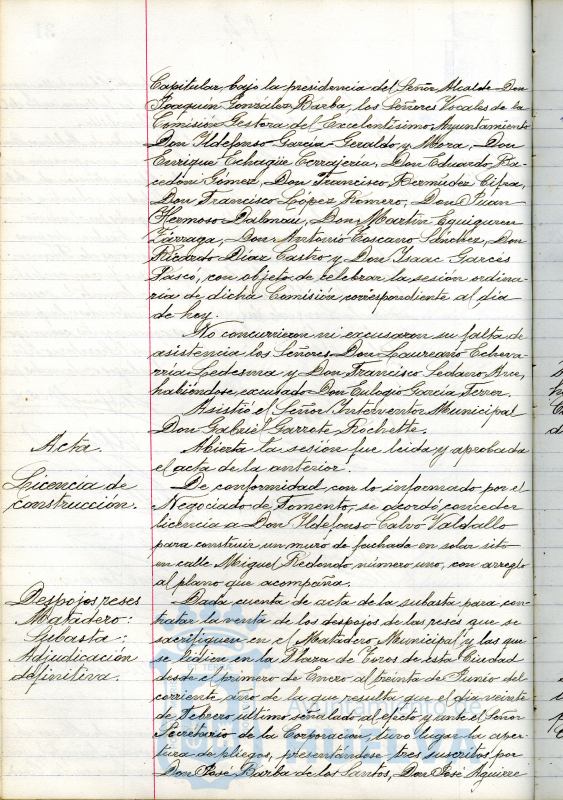 Capitular, bajo la presidencia del Señor Alcalde Don
Joaquín González Barba, los Señores Vocales de la
Comisión Gestora del Excelentísimo Ayuntamiento
Don Ildefonso García-Geraldo y Mora, Don
Enrique Echagüe Cerrajería, Don Eduardo Ra-
cedoni Gómez, Don Francisco Bermúdez Cifra,
Don Francisco López Romero, Don Juan
Hermoso Dalmau, Don Martín Equiguren
Zárraga, Don Antonio Toscano Sánchez, Don
Ricardo Díaz Castro y Don Isaac Garcés
Pascó, con objeto de celebrar la sesión ordina-
ria de dicha Comisión correspondiente al día
de hoy.
No concurrieron ni excusaron su falta de
asistencia los Señores Don Laureano Echeva-
rría Ledesma y Don Francisco Sedano Arce,
habiéndose excusado Don Eulogio García Ferrer.
Asistió el Señor Interventor Municipal
Don Gabriel Garrote Rochette.
Acta.
Abierta la sesión fue leída y aprobada
el acta de la anterior.
Licencia de
construcción.
De conformidad con lo informado por el
Negociado de Fomento, se acordó conceder
licencia a Don Ildefonso Calvo Valdallo
para construir un muro de fachada en solar sito
en calle Miguel Redondo número uno, con arreglo
al plano que acompaña.
Despojos reses
Matadero:
Subasta:
Adjudicación
definitiva.
Dada cuenta de acta de la subasta para con-
tratar la venta de los despojos de las reses que se
sacrifiquen en el Matadero Municipal y las que
se lidien en la Plaza de Toros de esta Ciudad
desde el primero de Enero al treinta de Junio del
corriente año de la que resulta que el día veinte
de Febrero último señalado al efecto y ante el Señor
Secretario de la Corporación, tuvo lugar la aper-
tura de pliegos, presentándose tres suscritos por
Don José Barba de los Santos, Don José Aguirre
Ayuntamiento de